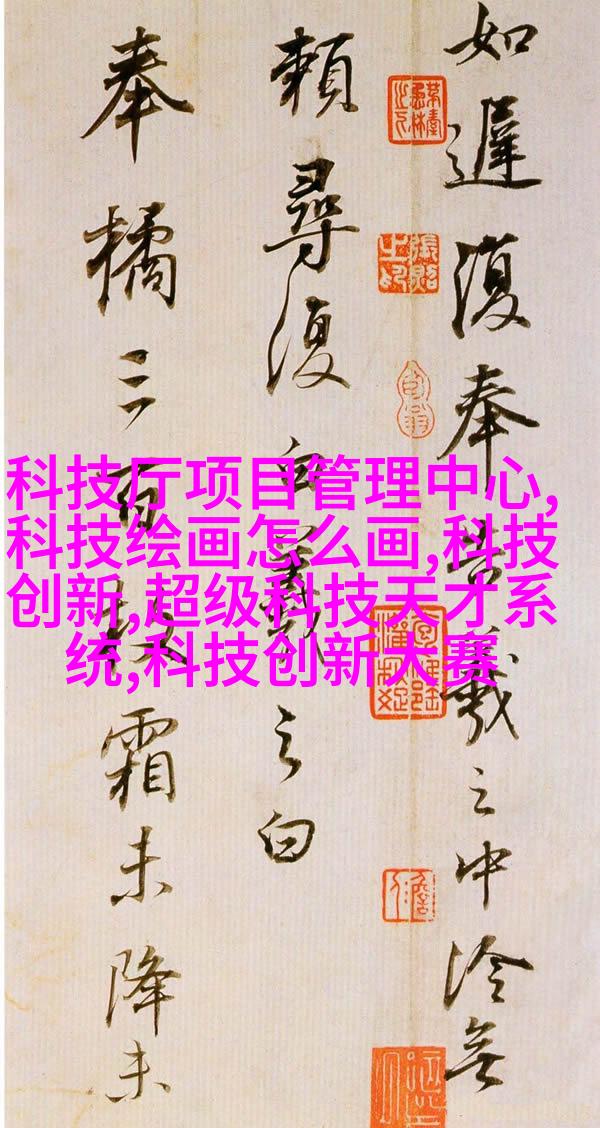 科技厅项目管理中心,
科技绘画怎么画,科技
创新,超级科技天才系
统,科技创新大赛
如遲復奉告羲之中冷無
賴尋復白羲之白
奉橘三百枚霜未降未